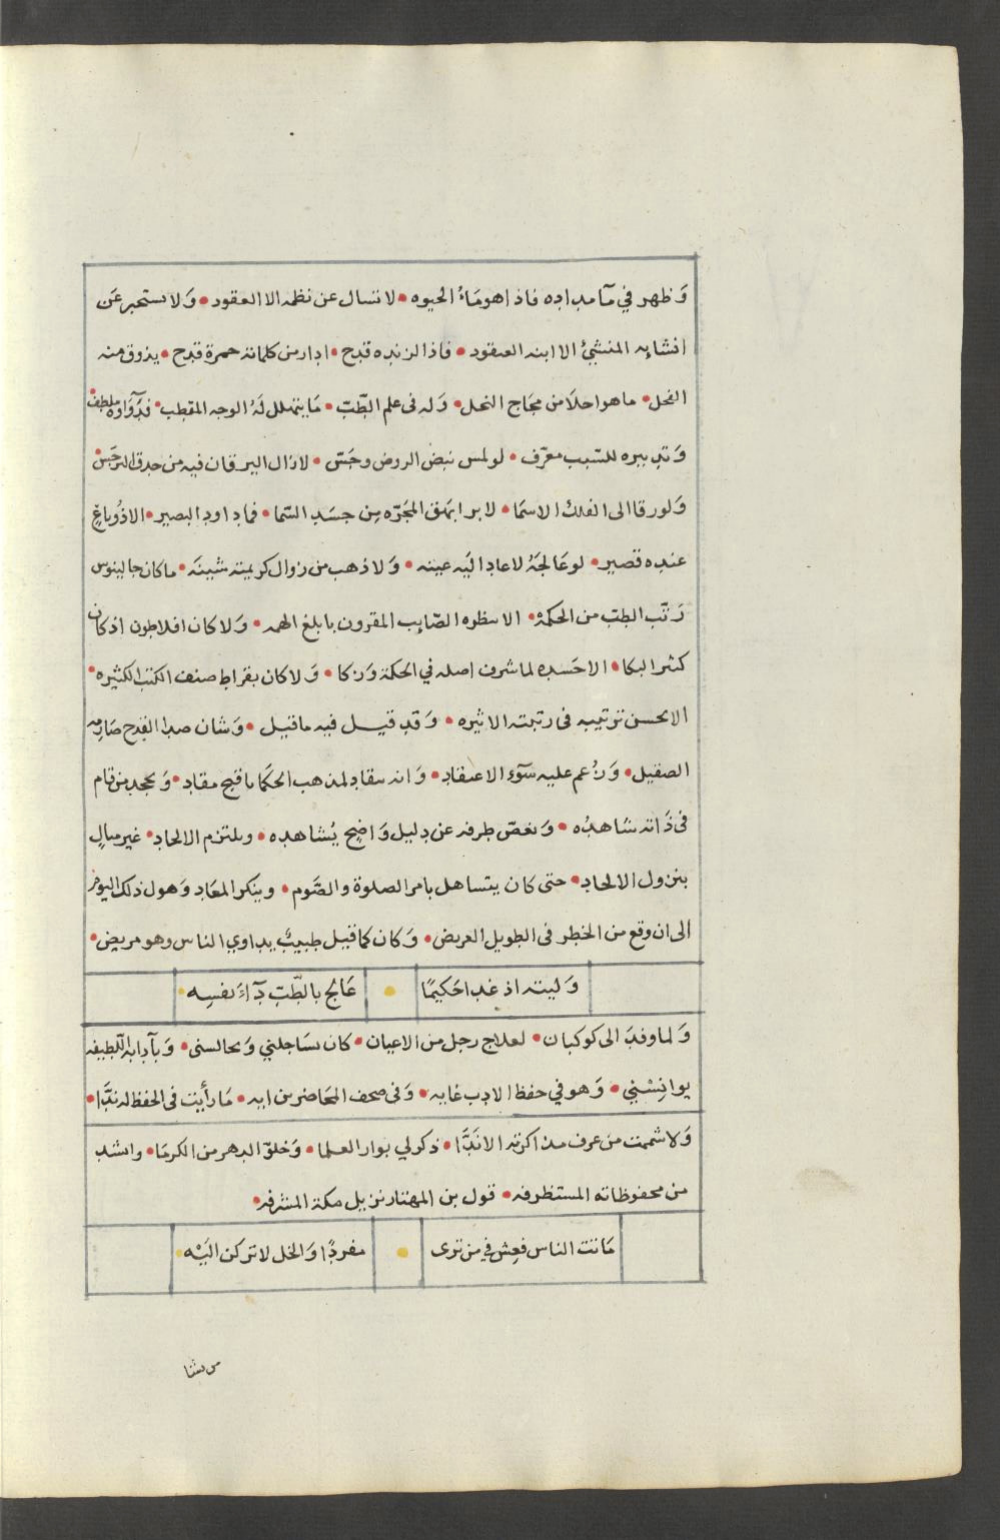 وَظهر في مآ مداده فاذا هو مَاءُ الحيوه • لا تسال عن نظمه الا العقود • وَلا تستخبر عَن
انشايه المنشئُ الا ابنه العنقود • فاذا لزنده قدح • ادار من كلماته خمرة قدح • يذوق منه
الفحل • ما هو احلاَ من مجَاج النحل • وَله في علم الطّب • مَا يتهلل لَهُ الوجه المقطب • فدَوَآوه ملطف
وَتدبيره للسّبب معرّف • لو لمس نبض الروض وجَسّ • لازال اليرقان فيه من حدق النرجَس
وَلو رقا الى الفلك الاسمَا • لابرا بهق المجَرّه مِن جسَد السّما • فما داود البصير • الا ذُوباعٍ
عنده قصير • لو عَالجَهُ لاعاد اليَه عينه • وَلاذهب من زوال كريمته شينَه • ما كان جالينوس
رَتّب الطبّ من الحكمهْ • الا بنظره الصّايب المقرون بابلغ الهمه • وَلا كان افلاطون اذ كان
كثير البكا • الا حَسده لما شرف اصله في الحكمة وَزكا • وَلا كان بقراط صنف الكتب الكثيره •
الا بحسن ترتيبه في رتبته الاثيره • وَقد قيل فيه ما قيل • وَشان صدا القدح صَارمه
الصقيل • وَزُعم عليه سَوء الاعتقاد • وَانه ينقاد لمذهب الحكمَا باقبح مقاد • وَيجحد من قام
في ذَاته شاهدُه • وَيغضّ طرفه عن دليل وَاضِح يُشاهده • ويلتزم الالحاد • غير مبالٍ
بنزول الالحاد • حتى كان يتساهل بامر الصلوة والصّوم • وينكر المعَاد وَهول ذلك اليوم •
الى ان وقع من الخطر في الطويل العريض • وَكان كما قيل طبيبٌ يداوي الناس وهو مريض •
وَليته اذ غدا حَكيمًا • عَالج بالطّبِ دَآءَ نفسِه •
وَلما وفدَ الى كوكبان • لعلاج رجل من الاعيان • كان يسَاجلني وَيجالسنى • وَبآدابه اللّطيفه
يوانِسُني • وَهو في حفظ الادب غايه • وَفى صحف المحَاضر من ايه • مَا رأيت في الحفظ له ندًّا •
وَلا شممت من عرف مذاكرته الا نَدًّا • ذكر لي بوار العلما • وَخلوّ الدهر من الكرمَا • وانشد
من محفوظاته المستظرفه • قول بن المهتار نزيل مكة المشرفه •
مَا تت الناس فعِش في من ترى • مفردًا وَالخل لا تركن اليَهْ •